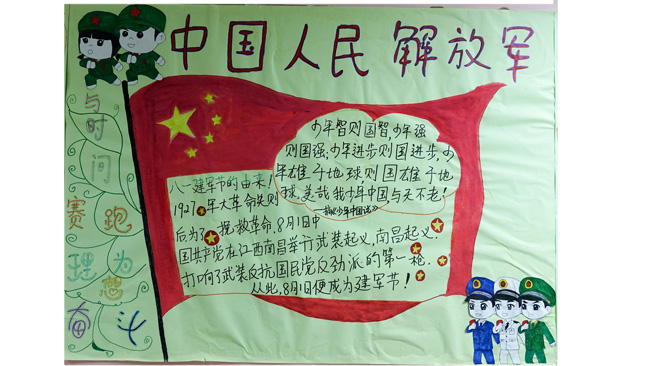 中国人民解放军
与时间
赛跑
理为想
奋斗
少年智则国智,少年强
则国强;少年进步则国进步,少
年雄于地球则国雄于地
球,美哉我少年中国与天不老!
—摘《少年中国说》
八一建军节的由来!
1927年大革命失则
后为了挽救革命,8月1日中
国共产党在江西南昌举行武装起义,南昌起义.
打响了武装反抗国民党反动派的第一枪.
从此,8月1日便成为建军节!